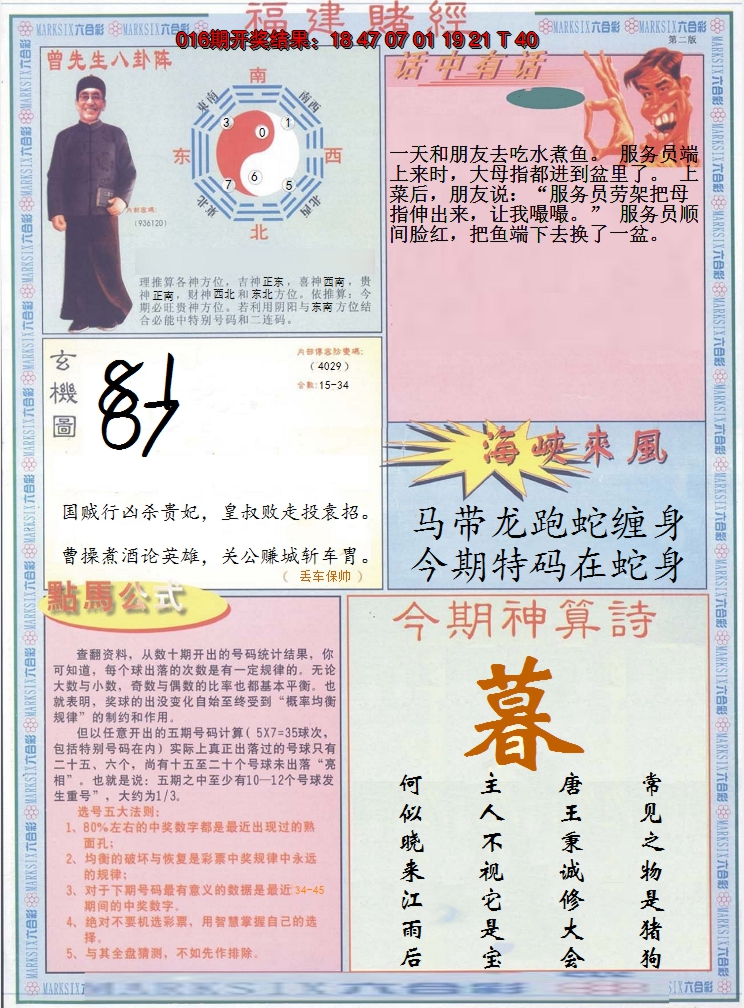 福建賭經
016期开奖结果：18 47 07 01 19 21 T 40
MARKSIX六合彩
第二版
曾先生八卦阵
南
東南
南西
3
0
1
东
西
7
6
5
東北
北西
北
內部密碼:
(936120)
理推算各神方位，吉神正东，喜神西南，贵
神正南，财神西北和东北方位。依推算：今
期必旺贵神方位。若利用阴阳与东南方位结
合必能中特别号码和二连码。
话中有话
一天和朋友去吃水煮鱼。 服务员端
上来时，大母指都进到盆里了。 上
菜后，朋友说：“服务员劳架把母
指伸出来，让我嘬嘬。” 服务员顺
间脸红，把鱼端下去换了一盆。
玄機圖
內部傳密防雙碼:
(4029)
合数:15-34
国贼行凶杀贵妃，皇叔败走投袁招。
曹操煮酒论英雄，关公赚城斩车胄。
（ 丢车保帅 ）
海峽來風
马带龙跑蛇缠身
今期特码在蛇身
點馬公式
查翻资料，从数十期开出的号码统计结果，你
可知道，每个球出落的次数是有一定规律的。无论
大数与小数，奇数与偶数的比率也都基本平衡。也
就表明，奖球的出没变化自始至终受到“概率均衡
规律”的制约和作用。
但以任意开出的五期号码计算( 5X7=35球次，
包括特别号码在内) 实际上真正出落过的号球只有
二十五、六个，尚有十五至二十个号球未出落“亮
相”。也就是说：五期之中至少有10—12个号球发
生重号”，大约为1/3。
选号五大法则：
1、80%左右的中奖数字都是最近出现过的熟
面孔；
2、均衡的破坏与恢复是彩票中奖规律中永远
的规律；
3、对于下期号码最有意义的数据是最近 34-45
期间的中奖数字。
4、绝对不要机选彩票，用智慧掌握自己的选
择。
5、与其全盘猜测，不如先作排除。
今期神算詩
暮
常见之物是猪狗
唐王秉诚修大会
主人不视它是宝
何似晓来江雨后